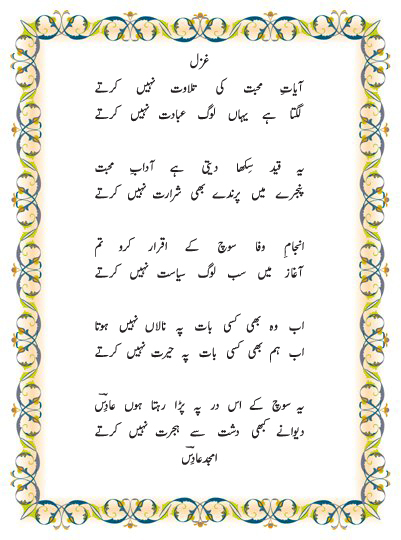 غزل
آیاتِ محبت کی تلاوت نہیں کرتے
لگتا ہے یہاں لوگ عبادت نہیں کرتے
یہ قید سِکھا دیتی ہے آدابِ محبت
پنجرے میں پرندے بھی شرارت نہیں کرتے
انجامِ وفا سوچ کے اقرار کرو تم
آغاز میں سب لوگ سیاست نہیں کرتے
اب وہ بھی کسی بات پہ نالاں نہیں ہوتا
اب ہم بھی کسی بات پہ حیرت نہیں کرتے
یہ سوچ کے اس در پہ پڑا رہتا ہوں عادِسؔ
دیوانے کبھی دشت سے ہجرت نہیں کرتے
امجد عادِسؔ